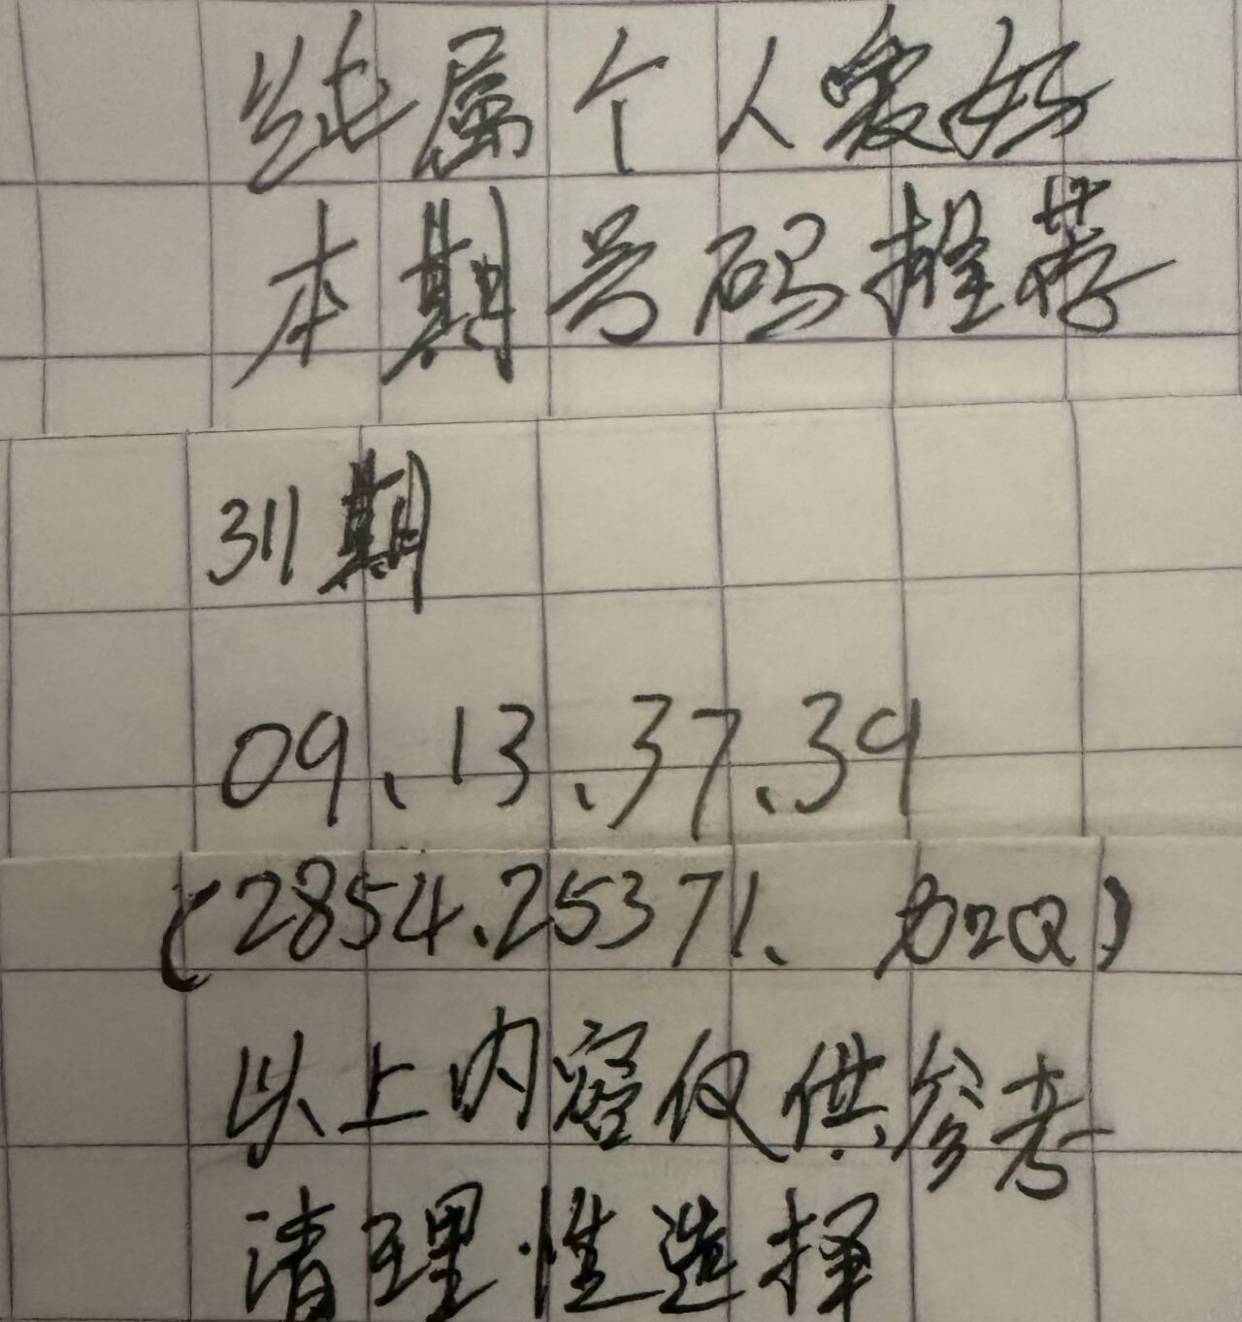 纯属个人爱好
本期号码推荐
311期
09、13、37、39
(2854.25371、加2Q)
以上内容仅供参考
请理性选择